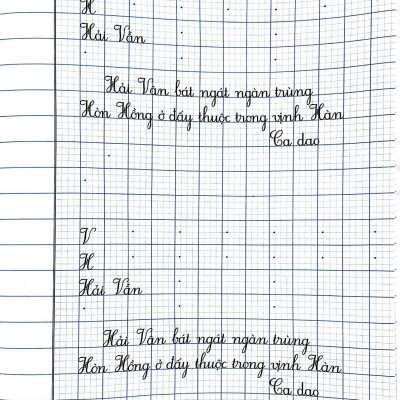 H
Hải Vân
Hải Vân bát ngát ngàn trùng
Hòn Hồng ở đấy thuộc trong vịnh Hàn
Ca dao
V
H
Hải Vân
Hải Vân bát ngát ngàn trùng
Hòn Hồng ở đấy thuộc trong vịnh Hàn
Ca dao